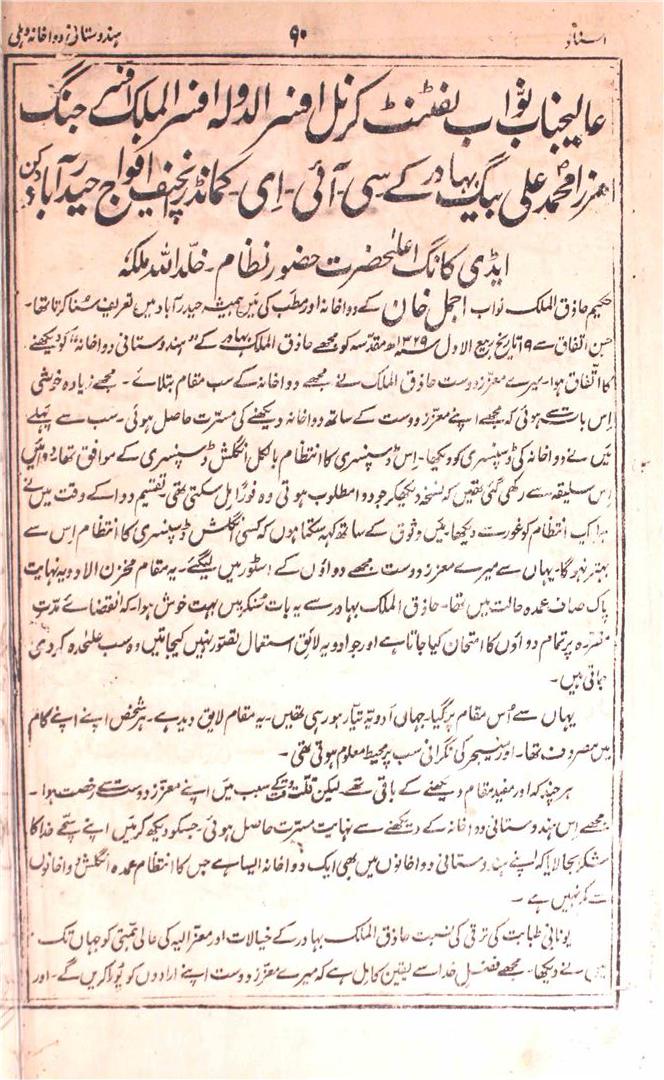 اسناد ۹۰ ہندوستانی دواخانہ دہلی
عالیجناب نواب لفٹننٹ کرنل افسر الدولہ افسر الملک افسر جنگ
مرزا محمد علی بیگ بہادر کے۔سی۔آئی۔ای۔ کمانڈر نچیف افواج حیدرآباد دکن
ایڈی کانگ اعلیٰحضرت حضور نظام۔ خلد اللہ ملکہ
حکیم حاذق الملک نواب اجمل خان کے دواخانہ اور مطب کی میں ہمیشہ حیدرآباد میں تعریف سُنا کرتا تھا۔
حسن اتفاق سے ۱۹ تاریخ ربیع الاول ۱۳۲۹ھ مقدسہ کو مجھے حاذق الملک بہادر کے "ہندوستانی دواخانہ" کو دیکھنے
کا اتفاق ہوا۔ میرے معزز دوست حاذق الملک نے مجھے دواخانہ کے سب مقام بتلائے۔ مجھے زیادہ خوشی
اِس بات سے ہوئی کہ مجھے اپنے معزز دوست کے ساتھ دواخانہ دیکھنے کی مسرت حاصل ہوئی۔ سب سے پہلے
میں نے دواخانہ کی ڈسپنسری کو دیکھا۔ اِس ڈسپنسری کا انتظام بالکل انگلش ڈسپنسری کے موافق تھا دوائیں
اِس سلیقہ سے رکھی گئی تھیں کہ نسخہ دیکھکر جو دوا مطلوب ہوتی وہ فوراً مل سکتی تھی تقسیم دوا کے وقت میں نے
ہر ایک انتظام کو غور سے دیکھا۔ میں وثوق کے ساتھ کہہ سکتا ہوں کہ کسی انگلش ڈسپنسری کا انتظام اِس سے
بہتر نہوگا۔ یہاں سے میرے معزز دوست مجھے دواؤں کے اسٹور میں لیگئے۔ یہ مقام مخزن الادویہ نہایت
پاک صاف عمدہ حالت میں تھا۔ حاذق الملک بہادر سے یہ بات سُنکر میں بہت خوش ہوا۔ کہ انقضائے مدتِ
مقررہ پر تمام دواؤں کا امتحان کیا جاتا ہے اور جو ادویہ لایق استعمال تصور نہیں کیجاتیں وہ سب علیحدہ کر دی
جاتی ہیں۔
یہاں سے اُس مقام پر گیا۔ جہاں ادویہ تیار ہو رہی تھیں۔ یہ مقام لایق دید ہے۔ ہر شخص اپنے اپنے کام
میں مصروف تھا۔ اور منیجر کی نگرانی سب پر محیط معلوم ہوتی تھی۔
ہر چند کہ اور مفید مقام دیکھنے کے باقی تھے۔ لیکن قلت وقت کے سبب میں اپنے معزز دوست سے رخصت ہوا۔
مجھے اِس ہندوستانی دواخانہ کے دیکھنے سے نہایت مسرت حاصل ہوئی۔ جسکو دیکھ کر میں اپنے سچے خدا کا
شکر بجا لایا کہ اپنے ہندوستانی دواخانوں میں بھی ایک دواخانہ ایسا ہے جس کا انتظام عمدہ انگلش دواخانوں
سے کم نہیں ہے۔
یونانی طبابت کی ترقی کی نسبت حاذق الملک بہادر کے خیالات اور معزالیہ کی عالی ہمتی کو جہاں تک
میں نے دیکھا۔ مجھے فضل خدا سے یقین کامل ہے کہ میرے معزز دوست اپنے ارادوں کو پُورا کریں گے۔ اور